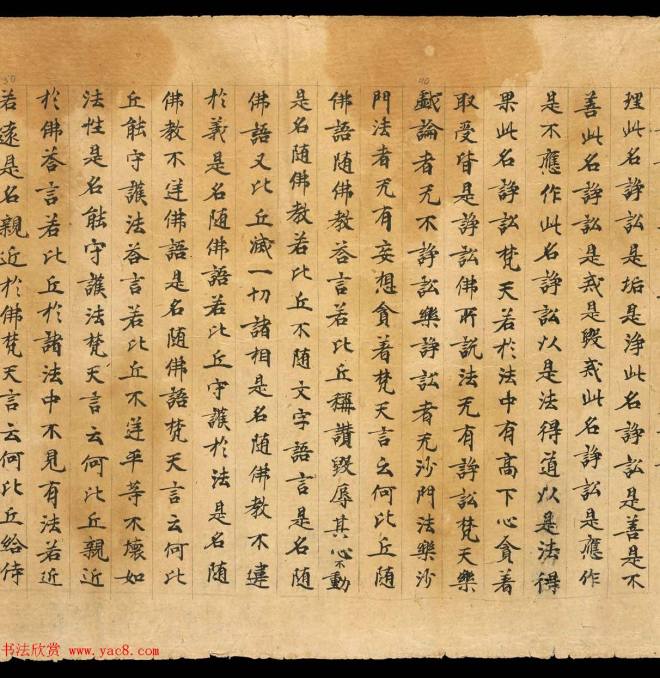 理此名諍訟是垢是淨此名諍訟是善是不
善此名諍訟是戒是毀戒此名諍訟是應作
是不應作此名諍訟以是法得道以是法得
果此名諍訟梵天若於法中有高下心貪著
取受皆是諍訟佛所說法无有諍訟梵天樂
戲論者无不諍訟樂諍訟者无沙門法樂沙
門法者无有妄想貪著梵天言云何比丘随
佛語随佛教荅言若比丘稱讚毀辱其心不動
是名随佛教若比丘不随文字語言是名随
佛語又比丘滅一切諸相是名随佛教不違
於義是名随佛語若比丘守護於法是名随
佛教不逆佛語是名随佛語梵天言云何比
丘能守護法荅言若比丘不逆平等不壞如
法性是名能守護法梵天言云何比丘親近
於佛荅言若比丘於諸法中不見有法若近
若遠是名親近於佛梵天言云何比丘給侍
40
书法欣赏 www.yac8.com